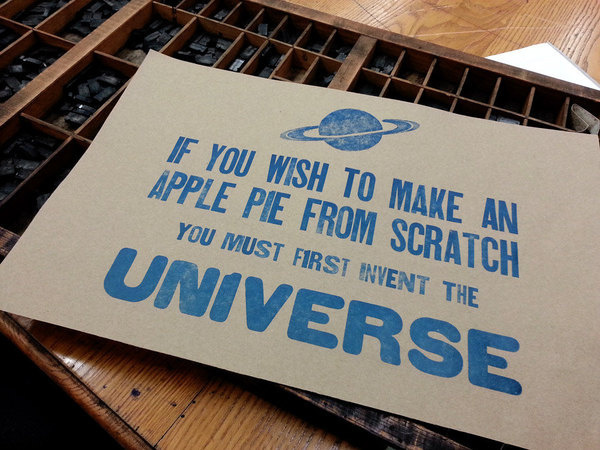 IF YOU WISH TO MAKE AN
APPLE PIE FROM SCRATCH
YOU MUST FIRST INVENT THE
UNIVERSE